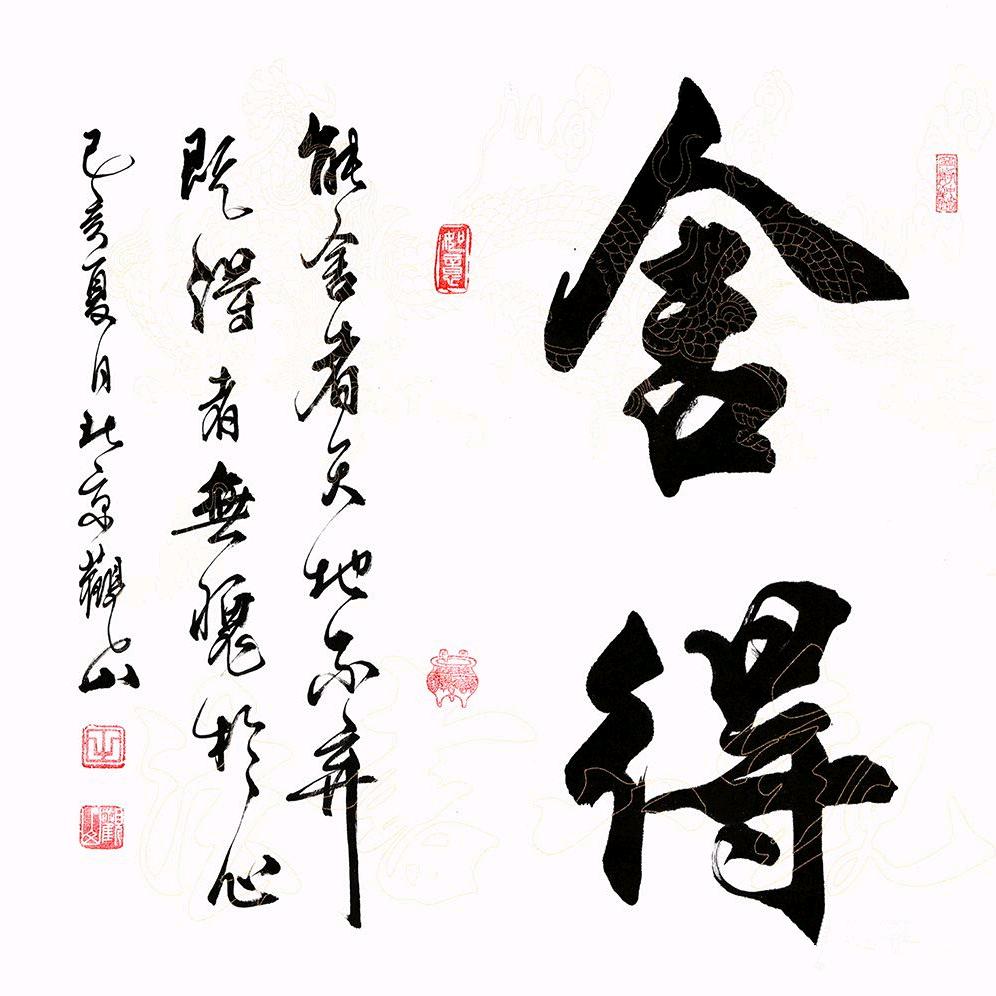 舍得
能舍者天地不弃
既得者無愧於心
己亥夏日北京觀山
如意